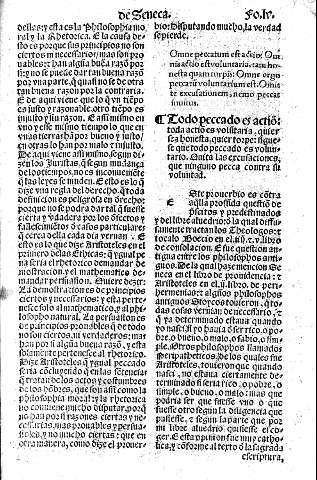 de Seneca.
Fo.lv.
delles: y esta es la Philosophia mo
ral y la Rhetorica. E la causa de
sto es porque sus principios no son
ciertos ni necessarios, mas son pro
uables: t han algũa buẽa razõ por
sí: y no se puede dar tan buena razõ
por vna parte, q̃ quasi no se de otra
tan buena razon por la contraria.
E de aqui viene que lo q̃ vn tiẽpo
es justo y razonable otro tiempo es
injusto y sin razon. E assi mismo en
vno y esse mismo tiempo lo que en
vnas tierras hã por bueno y justo, en
otras lo han por malo e injusto.
De aqui viene assi mismo, segun di
zen los Juristas, q̃ segun mudança
de los tiempos, no es inconueniẽte
q̃ las leyes se muden. E esto es lo q̃
dize vna regla del derecho. q̃ toda
definicion es peligrosa en derecho:
porque no se podria dar tal q̃ fuesse
cierta y valadera por los diersos y
cerca dello cada dia vernan. E
esto es lo que dize Aristoteles en el
primero de las Ethicas: q̃ ygual pe
ca seria el rhetorico demandar de
mostracion, y el mathematico de
mandar persuasion. E quiere dezir:
La demonstration es de principios
ciertos y necessarios: y esta pertene
sce solo al mathematico, y al philo
sopho natural. La persuasion es
de principios prouables q̃ de todo
no son ciertos, ni verdaderos: mas
han por si algũa buena razõ, y esta
solamente pertenesce al rhetorico.
Dize Aristoteles q̃ ygual peccado
seria
q̃ tratar de los actos y costumbres
de los hõbres, que son assi como la
philosophia moral: y la rhetorica
no conuiene mucho disputar, porq̃
no han por si razones ciertas y ne
cessarias, mas prouables y persua
sibles, y no mucho ciertas: que en
otra manera, como dize el prouer
bio: Disputando mucho, la verdad
se pierde.
Omne peccatum est actio: Om
nis actio est voluntaria, tam ho
nesta quam turpis: Omne ergo
peccatum voluntarium est: Omit
te excusationem, nemo peccat
inuitus.
¶ Todo peccado es actiõ:
toda actiõ es volũtaria, quier
sea honesta, quier torpe: sigue
se que todo peccado es volun
tario. Quita las excusaciones,
que ninguno pecca contra su
voluntad.
Este prouerbio es cõtra
aq̃lla prolixa questiõ de
prescitos y predestinados
y del libre aluedrio: la qual diffu
samente tractan los Theologos: t
tocala Boecio en el
de consolacion. E fue question an
tigua entre los philosophos anti
guos. De la qual haze mencion Se
neca en el libro de prouidencia: y
Aristoteles en el .ij. libro. de peri
hermenias: t algũos philosophos
antiguos Stoycos touieron, q̃ to
das cosas vernian de necessario, t
q̃ ya determinado estaua quando
yo nasci, si yo hauia d ser rico, o po
bre, o bueno, o malo, o sabio, o sim
ple. Otros philosophos llamados
Peripatheticos, De los quales fue
Aristoteles, touieron que quando
nasci, no estaua ciertamente de
terminado si seria rico, o pobre, o
simple. o bueno, o malo: mas que
podria ser que fuesse vno o que
fuesse otro segun la diligencia que
pusiesse, t segun la parte que por
mi libre aluedrio quisiesse esco
ger. E esta opinion fue muy catho
lica, y cõforme al texto d la sagrada
escriptura,